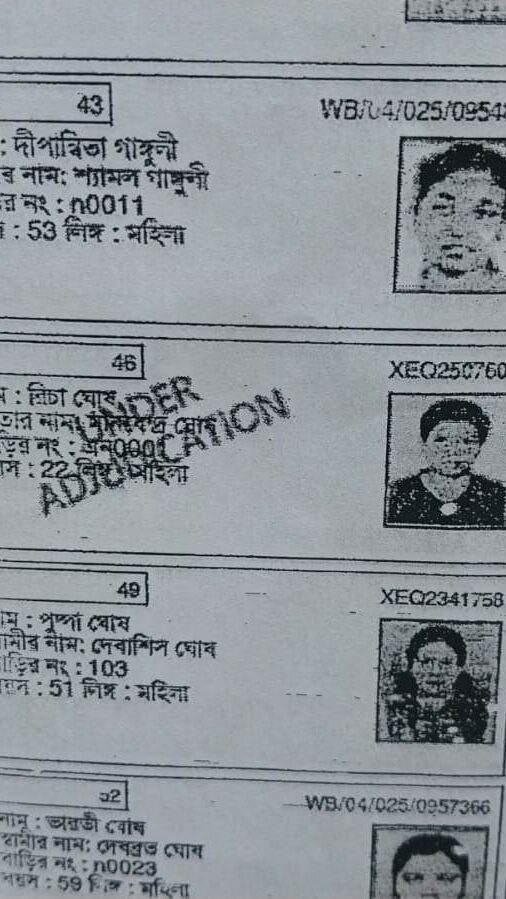 43
WB/04/025/0954
: দীপান্বিতা গাঙ্গুলী
র নাম: শ্যামল গাঙ্গুলী
নং : n0011
: 53 লিঙ্গ : মহিলা
46
XEQ250760
ম : রিচা ঘোষ
নাম
UNDER
ড়ির নং :
স : 22 লিঙ্গ : মহিলা
ADJUDICATION
49
XEQ2341758
াম : পুষ্পা ঘোষ
ামীর নাম: দেবাশিস ঘোষ
বাড়ির নং : 103
য়স : 51 লিঙ্গ : মহিলা
52
WB/04/025/0957366
নাম : ভারতী ঘোষ
স্বামীর নাম: দেবব্রত ঘোষ
বাড়ির নং : n0023
বয়স : 59 লিঙ্গ : মহিলা